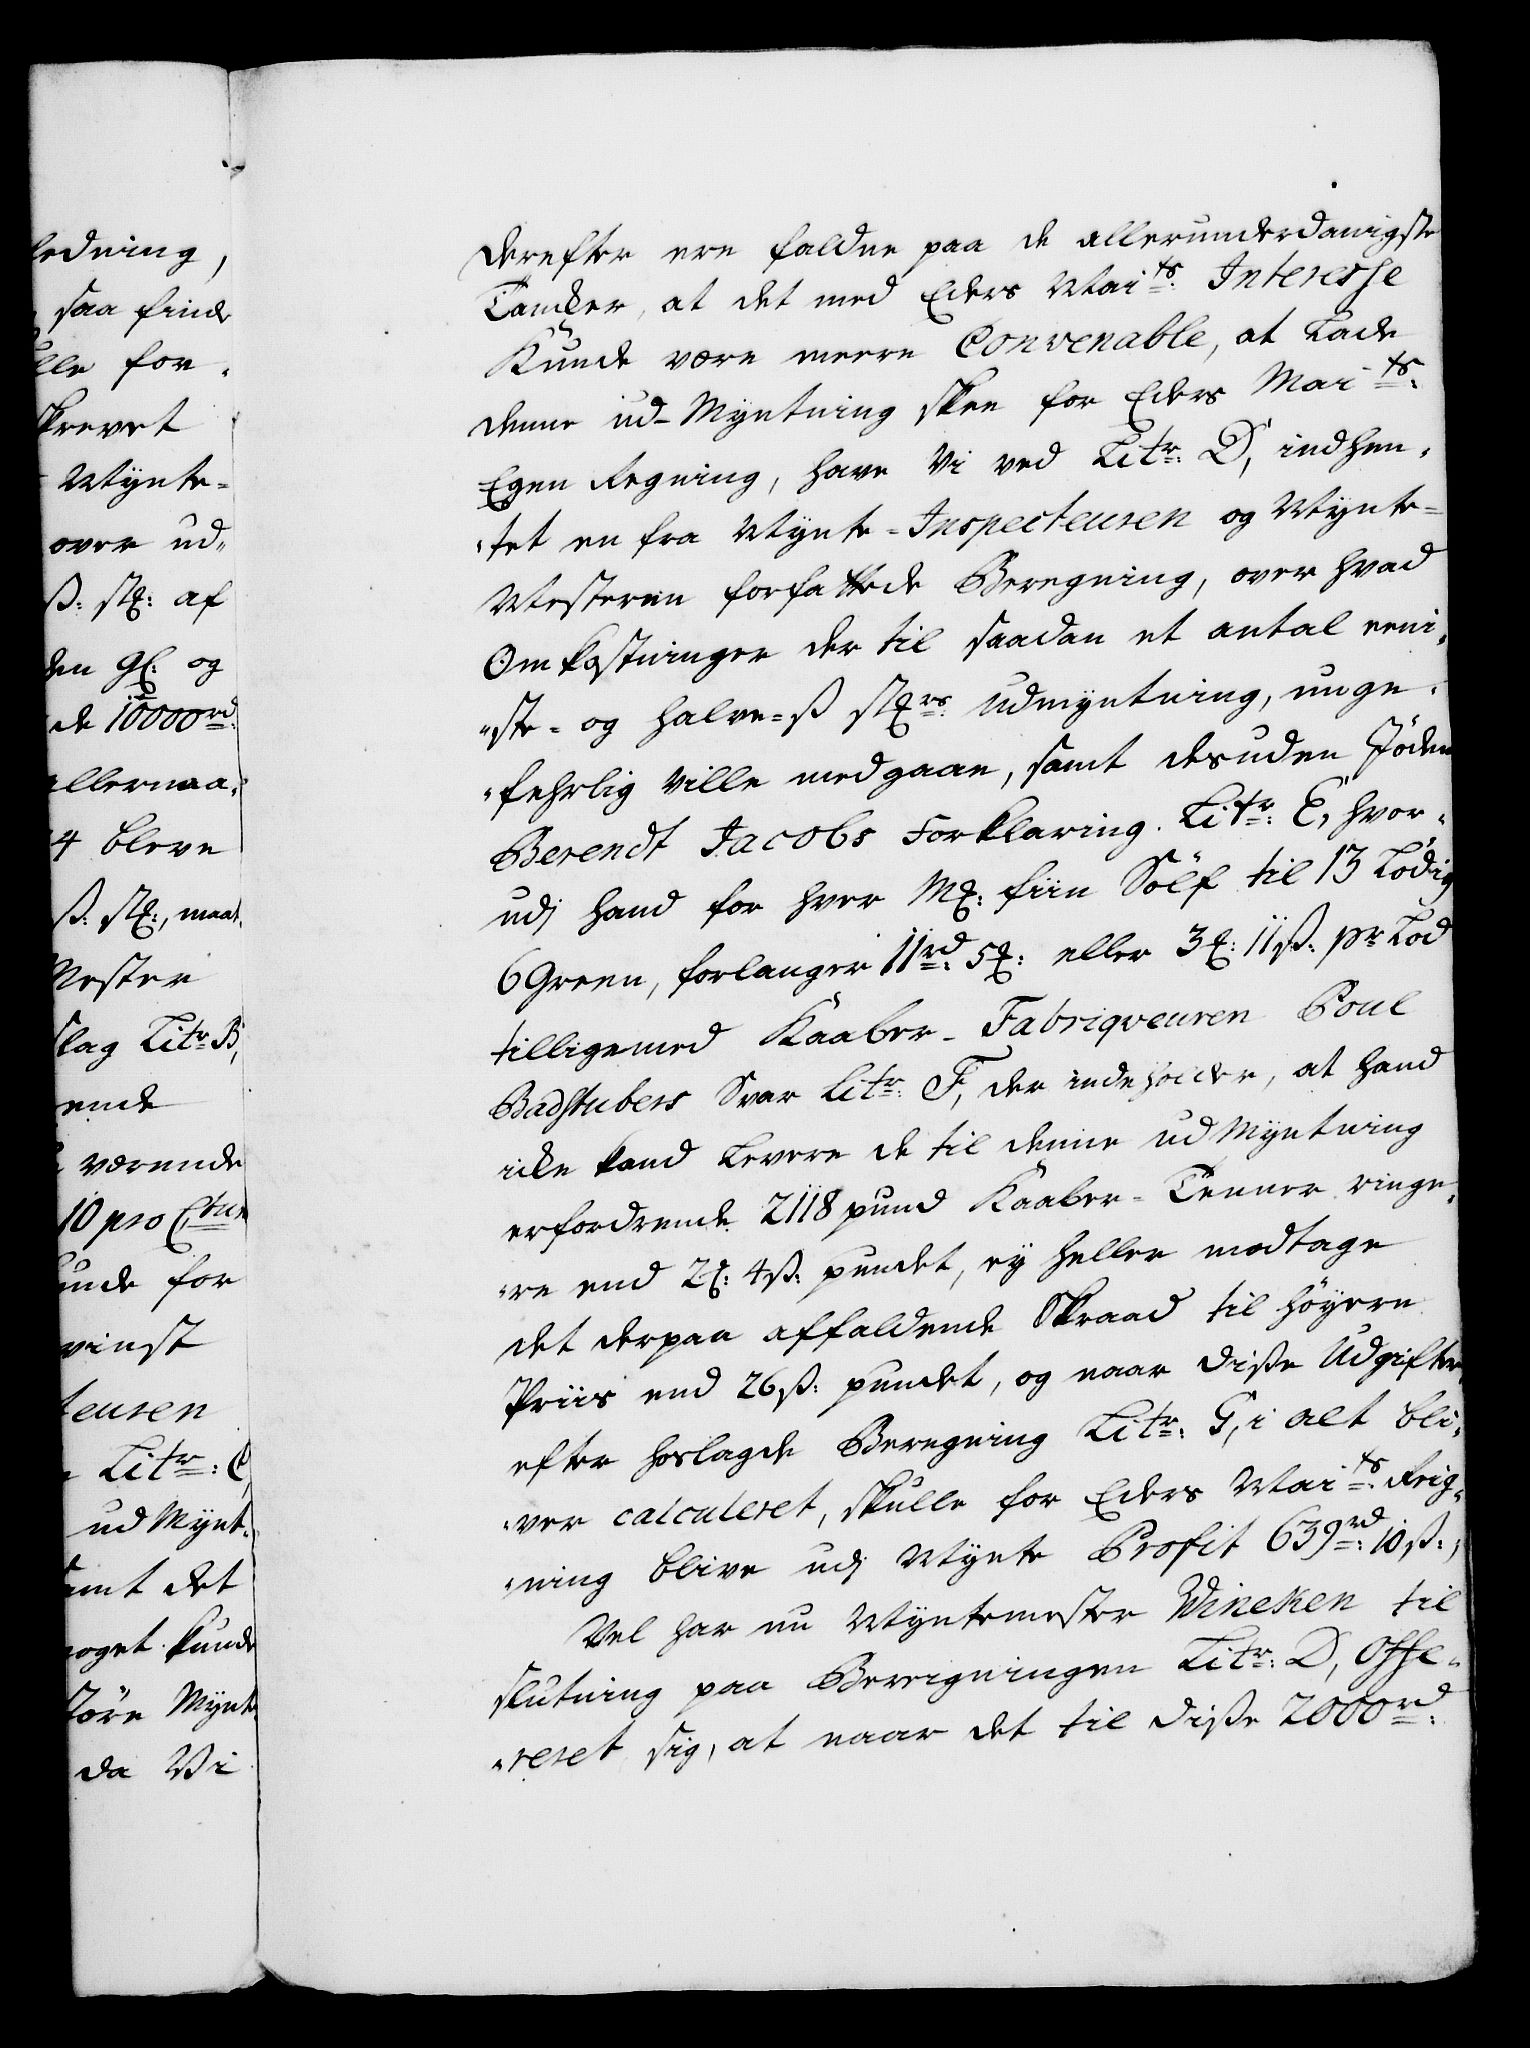 ledning,
saa finde
lle for-
skrevet
Mynte-
over ud-
ß: st&: af
den gl: og
de 10000rd:
allernaa-
4 bleve
ß: st&:, maat
Mester
slag Litr B,
ende
værende
10 pro Ctum
unde for
vinst
teuren
Litr: C,
ud Mynt-
samt det
noget kunde
større Mynt
da Vi
derefter ere faldne paa de allerunderdanigste
Tancker, at det med Eders Maits: Interesse
Kunde være meere Convenable, at Lade
denne ud-Myntning skee for Eders Maits:
Egen Regning, have Vi ved Litr: D, indhen-
tet en fra Mynte-Inspecteuren og Mynte-
Mesteren forfattede Beregning, over hvad
Omkostninger der til saadan et antal eeni-
ste- og halve-ß st&rs: udmyntning, unge-
fehrlig Ville medgaae, samt desuden Jöden
Berendt Jacobs Forklaring Litr: E, hvor-
udj hand for hver M&: fiin Sölf til 13 Lödig
6 Green, forlanger 11rd: 5&: eller 3&: 11ß: pr Lod
tilligemed Kaaber-Fabriqveuren Poul
Badstubers Svar Litr: F, der indeholder, at hand
icke kand Levere de til denne ud Myntning
erfordrende 2118 pund Kaaber-Tenner ringe-
re end 2&: 4ß: pundet, ey heller modtage
det derpaa affaldende Skraad til höyere
Priis end 26ß: pundet, og naar diße Udgifter
efter hoslagde Beregning Litr: G, i alt bli-
ver calculeret, skulle for Eders Maits: Reig-
ning blive udj Mynte Profit 639rd: 10ß:,
Vel har nu Myntemester Wineken til
slutning paa Bereigningen Litr: D, Offe-
reret sig, at naar det til diße 2000rd: